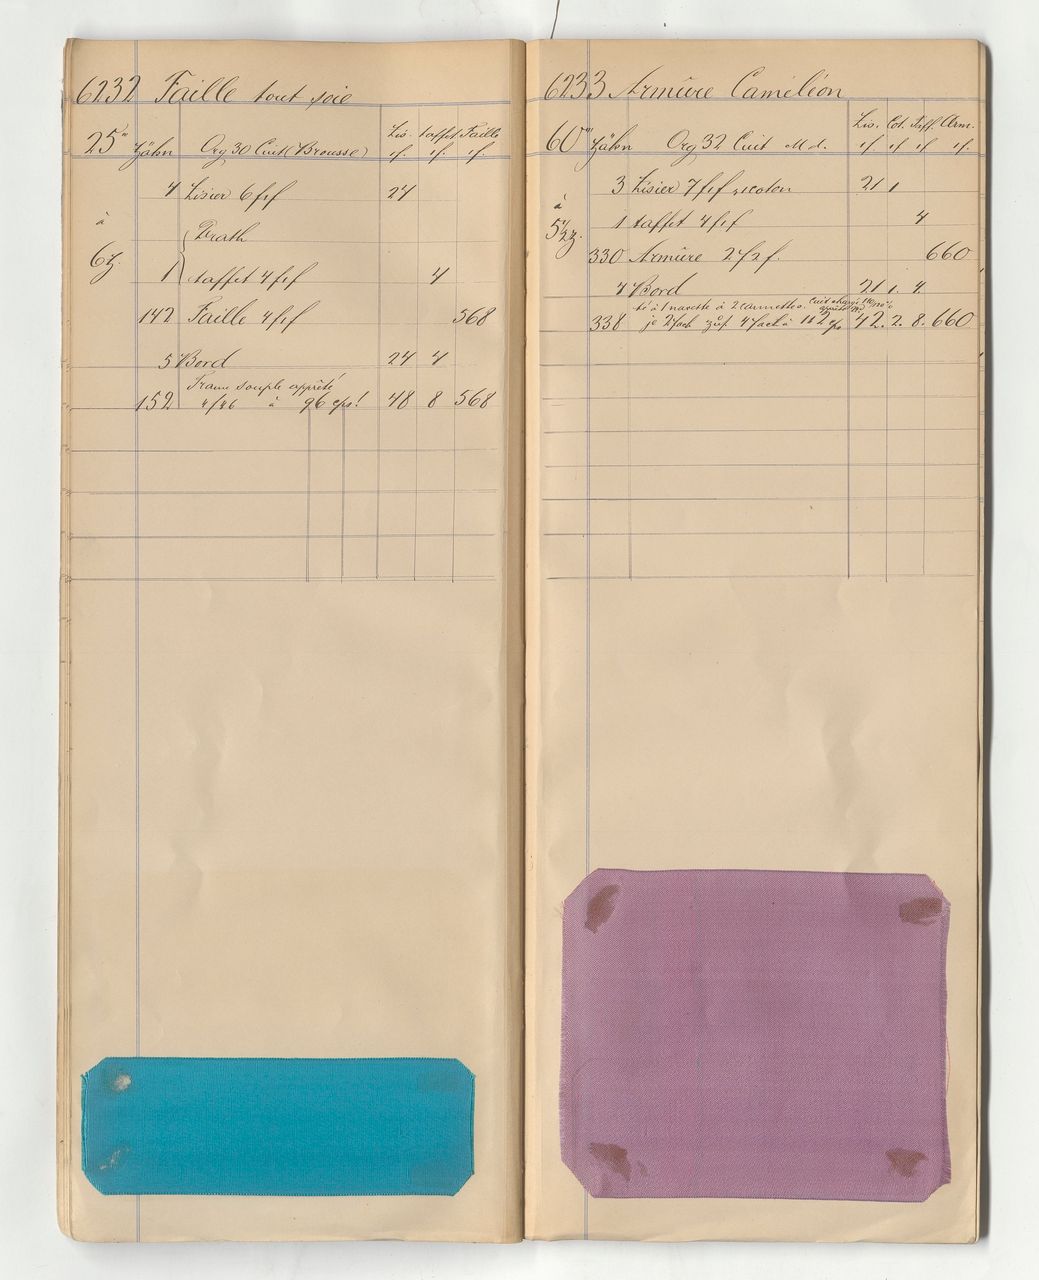 6232 Faille tout soie
Lis. taffet Faille
25‴ Zähn Org 30 Cuit (Brousse) 1f. 1f. 1f.
4 Lisier 6 f 1 f 24
à Drath
6 z.
1 taffet 4 f 1 f 4
142 Faille 4 f 1 f 568
5 Bord 24 4
Trame souple apprêté
152 4/46 à 96 cps! 48 8 568
6233 Armûre Caméléon
Lis. Cot. Taff. Arm.
60‴ Zähn Org 32 Cuit Md. 1f. 1f 1f 1f.
3 Lisier 7 f 1 f 1 coton 21 1
à
5½ z. 1 taffet 4 f 1 f 4
330 Armûre 2 f 2 f. 660
4 Bord 21 1. 4.
à 1 navette à 2 cannettes.
338 je 2fach 4fach à 42. 2. 8. 660